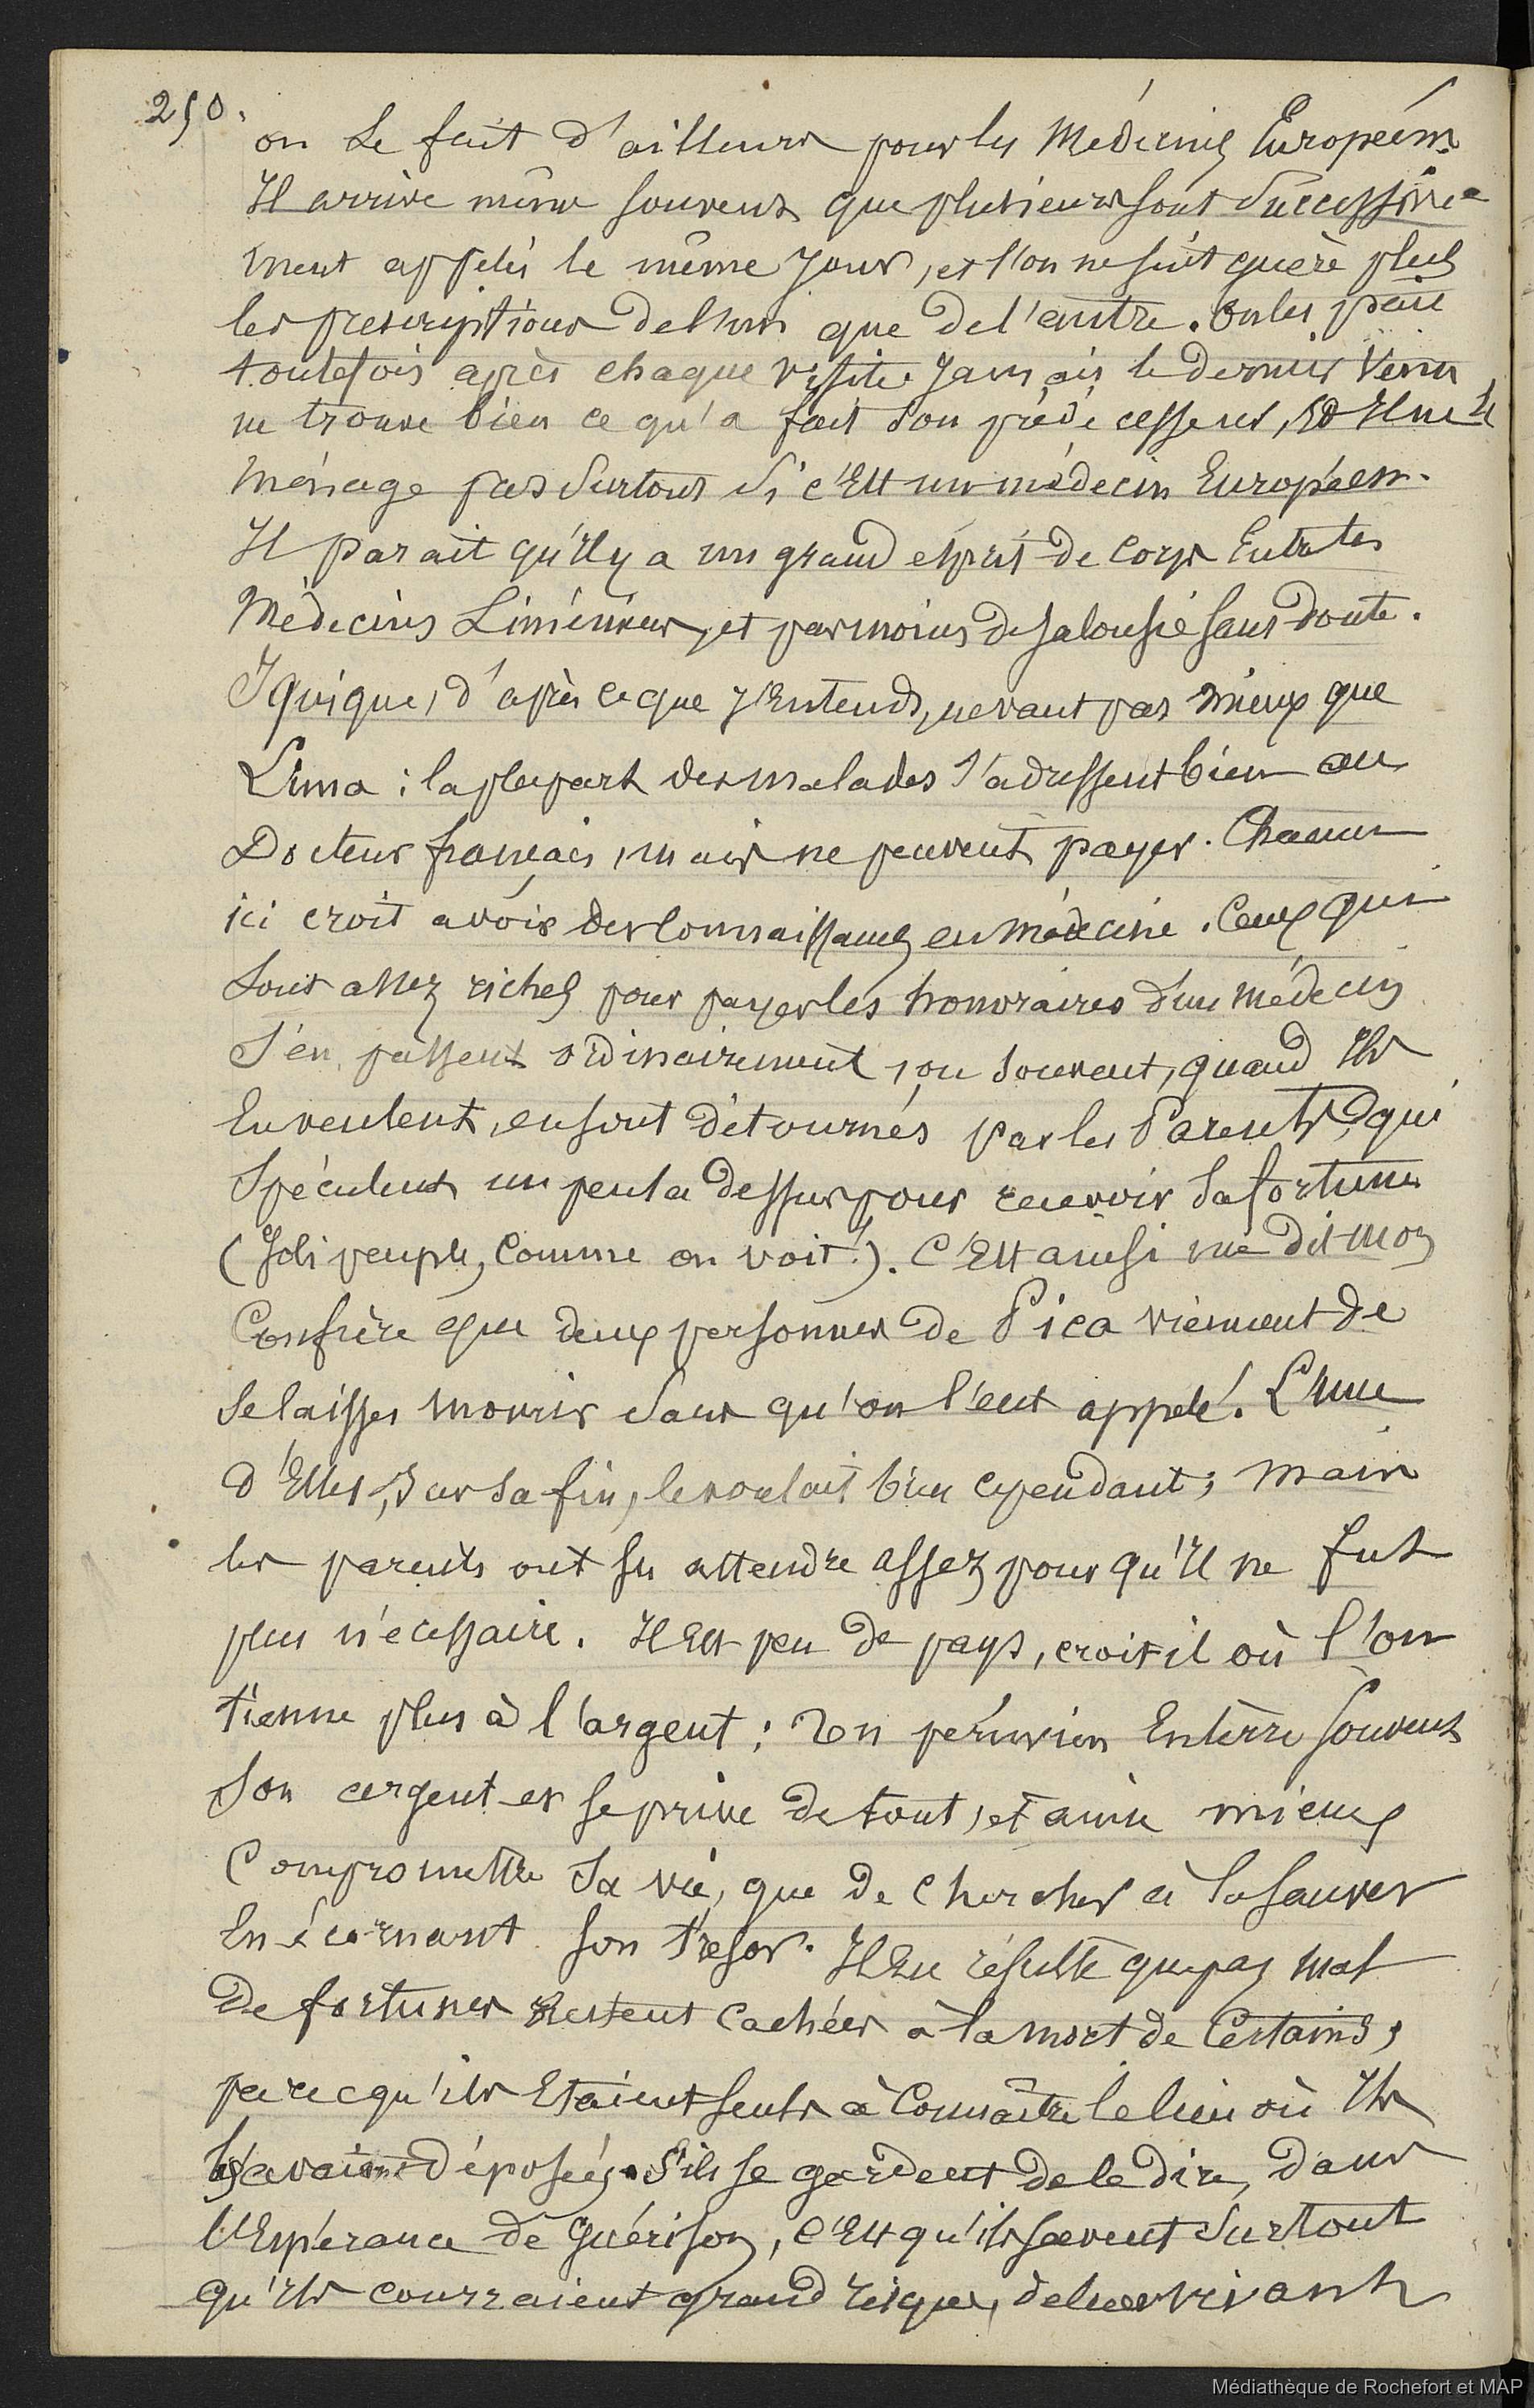 250.
on le fait d'ailleurs pour les Médecins Européens.
Il arrive même souvent que plusieurs sont successive-
ment appelés le même jour, et l'on ne suit guère plus
les prescriptions de l'un que de l'autre. On les paie
toutefois après chaque visite. Jamais le dernier venu
ne trouve bien ce qu'a fait son prédécesseur, et Il ne le
ménage pas surtout si c'Est un médecin Européen.
Il parait qu'Il y a un grand esprit de corps Entre les
Médecins Liméniens, et pas moins de jalousie sans doute.
Iquique, d'après ce que j'Entends, ne vaut pas mieux que
Lima : la plupart des malades s'adressent bien au
Docteur français, mais ne peuvent payer. Chacun
ici croit avoir des Connaissances en médecine. Ceux qui
sont assez riches pour payer les honoraires d'un médecin
s'en passent ordinairement, ou souvent, quand Ils
En veulent, en sont détournés par les Parents, qui
spéculent un peu la dessus pour recevoir sa fortune
(Joli peuple, Comme on voit!). C'Est ainsi me dit mon
Confrère que deux personnes de Pica viennent de
se laisser mourir sans qu'on l'eut appelé. L'une
d'Elles, sur sa fin, le voulait bien cependant; mais
les parents ont su attendre assez pour qu'Il ne fut
plus nécessaire. Il Est peu de pays, croit-il où l'on
tienne plus à l'argent : Un péruvien Enterre souvent
son argent et se prive de tout, et aime mieux
Compromettre sa vie, que de chercher à la sauver
En écornant son trésor. Il En résulte que pas mal
de fortunes Restent Cachées à la mort de Certains,
parce qu'ils Etaient seuls à Connaître le lieu où Ils
les avaient déposées. S'ils se gardent de le dire, dans
l'Espérance de Guérison, c'Est qu'ils savent surtout
qu'Ils courraient grand risque, de leur vivant
Médiathèque de Rochefort et MAP